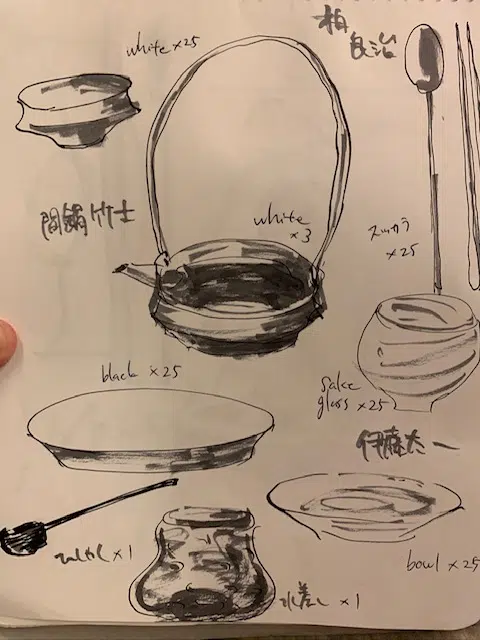 white ×25
柏
良治
間鍋竹士
white
×3
スッカラ
×25
black ×25
sake
glass ×25
伊藤太一
ひしゃく ×1
水差し ×1
bowl ×25